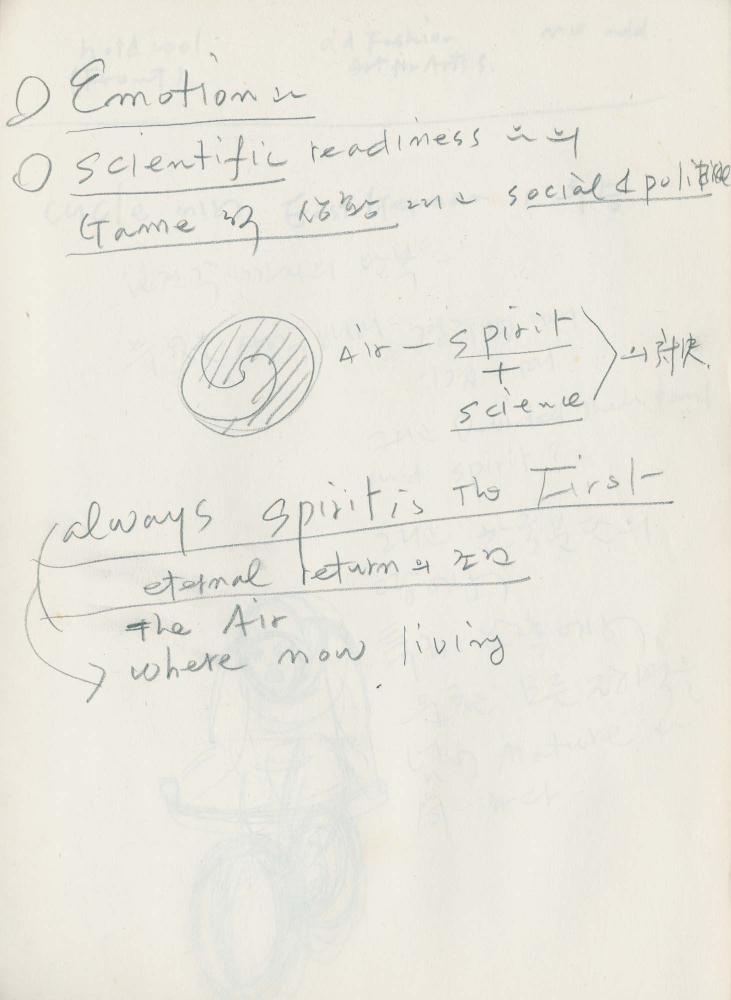 Emotion
Scientific readiness 의
Game 적 상황 그리고 social & political
Air — spirit
+
science
의 対決
always spirit is The First
eternal return의 조건
The Air
where now living